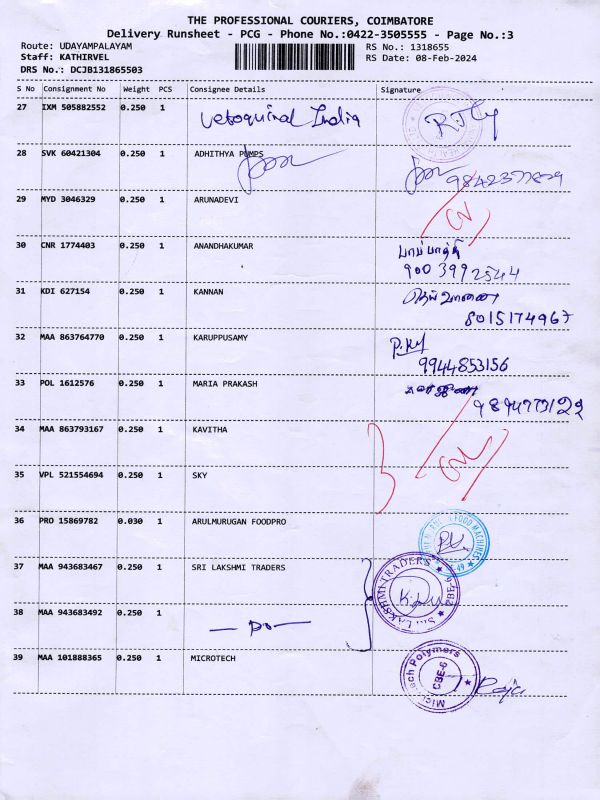 THE PROFESSIONAL COURIERS, COIMBATORE
Delivery Runsheet - PCG - Phone No.:0422-3505555 - Page No.:3
Route: UDAYAMPALAYAM RS No.: 1318655
Staff: KATHIRVEL RS Date: 08-Feb-2024
DRS No.: DCJB131865503
S No Consignment No Weight PCS Consignee Details Signature
27 IXM 505882552 0.250 1 Vetoquinol India
28 SVK 60421304 0.250 1 ADHITHYA PUMPS
29 MYD 3046329 0.250 1 ARUNADEVI
30 CNR 1774403 0.250 1 ANANDHAKUMAR
9003992544
31 KDI 627154 0.250 1 KANNAN
8015174967
32 MAA 863764770 0.250 1 KARUPPUSAMY
9944853156
33 POL 1612576 0.250 1 MARIA PRAKASH
34 MAA 863793167 0.250 1 KAVITHA
35 VPL 521554694 0.250 1 SKY
36 PRO 15869782 0.030 1 ARULMURUGAN FOODPRO
FOOD MACHINES
37 MAA 943683467 0.250 1 SRI LAKSHMI TRADERS
SRI LAKSHMI TRADERS
38 MAA 943683492 0.250 1 — Do —
39 MAA 101888365 0.250 1 MICROTECH
Microtech Polymers
CBE-6
Raja